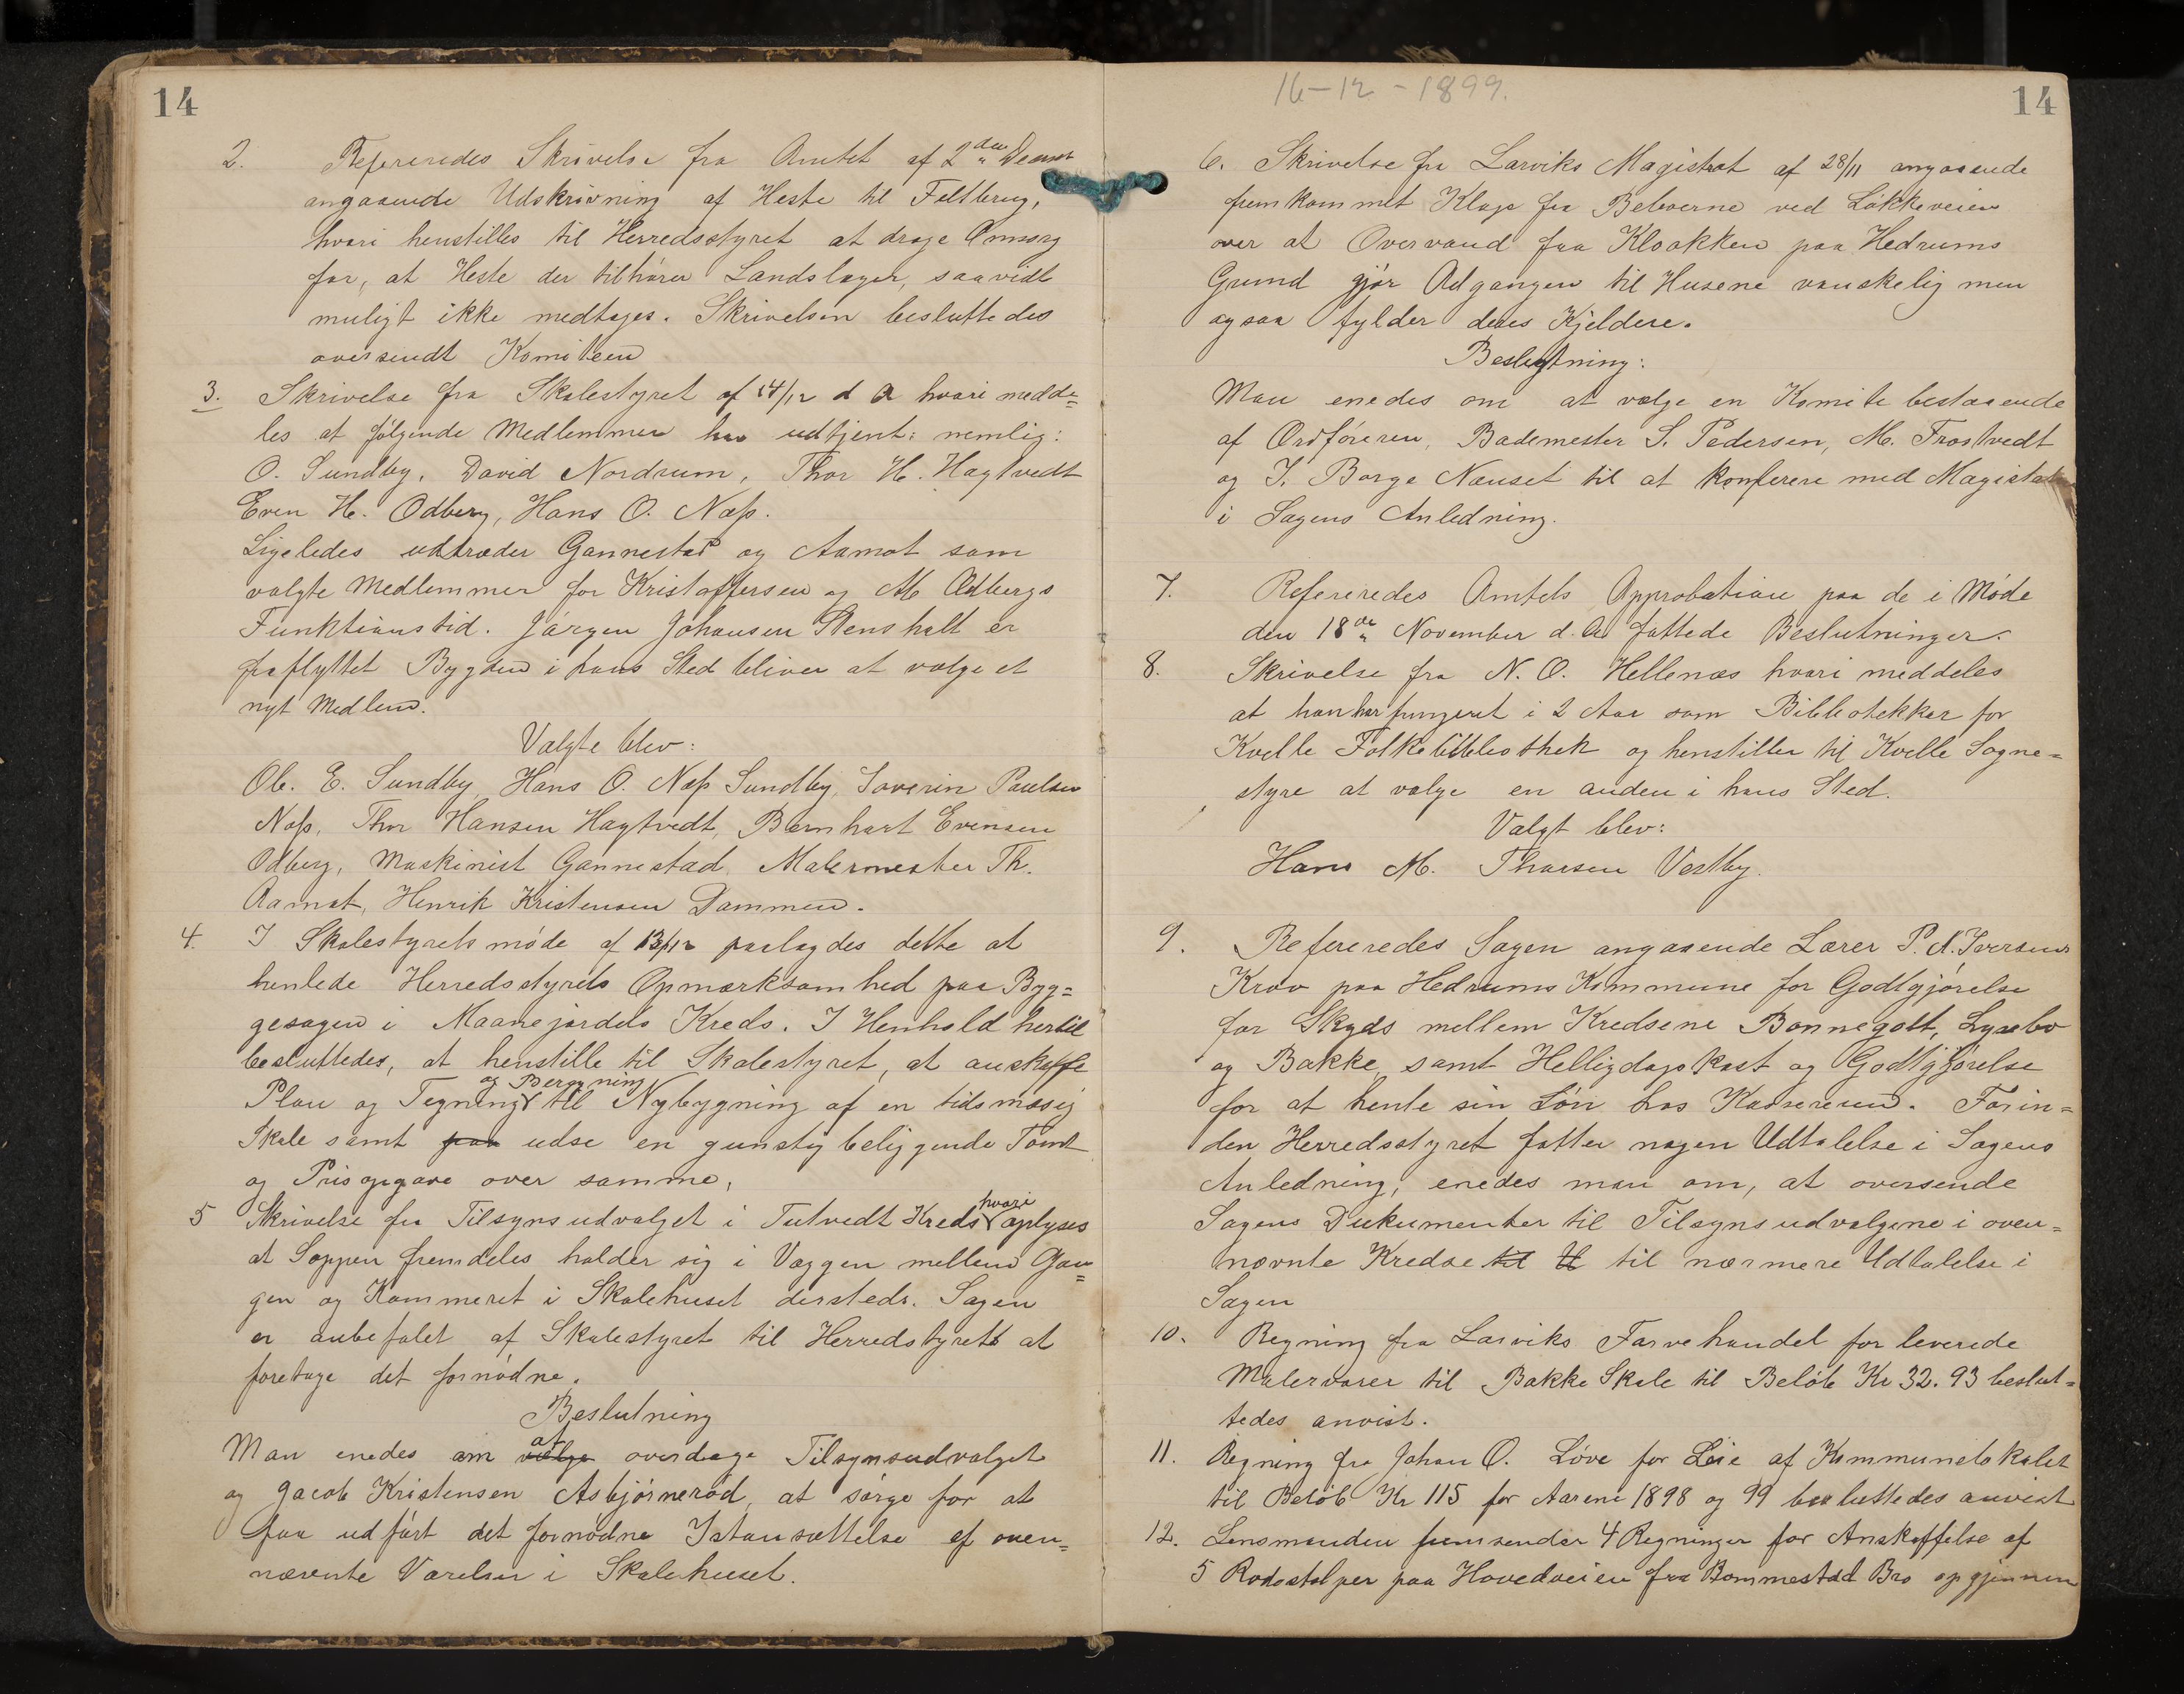 14
2. Refereredes Skrivelse fra Amtet af 2den Decmbr
angaaende Udskrivning af Heste til Feltbrug,
hvori henstilles til Herredsstyret at drage Omsorg
for, at Heste der tilhører Landslæger, saavidt
muligt ikke medtages. Skrivelsen besluttedes
oversendt Komiteen
3. Skrivelse fra Skolestyret af 14/12 d A hvori medde=
les at følgende Medlemmer har udtjent: nemlig:
O. Sundby, David Nordrum, Thor H. Hagtvedt
Even H. Odberg, Hans O. Næss.
Ligeledes udtræder Gannestad og Aamot som
valgte Medlemmer for Kristoffersen og M Ødbergs
Funktionstid. Jørgen Johansen Stenshalt er
fraflyttet Bygden i hans Sted bliver at vælge et
nyt Medlem.
Valgte blev:
Ole E. Sundby, Hans O. Næss Sundby, Soverin Paulsen
Næss, Thor Hansen Hagtvedt, Bernhart Evensen
Odberg, Maskinist Gannestad, Malermester Th.
Aamot, Henrik Kristensen Dammen.
4. I Skolestyrets møde af 13/12 paalagdes dette at
henlede Herredsstyrets Opmærksomhed paa Byg=
gesagen i Maanejordets Kreds. I Henhold hertil
besluttedes, at henstille til Skolestyret, at anskaffe
Plan og Tegning og Beregning til Nybygning af en tidsmæsig
Skole samt paa udse en gunstig beliggende Tomt
og Prisopgave over samme,
5 Skrivelse fra Tilsynsudvalget i Tutvedt Kreds hvori oplyses
at Soppen fremdeles holder sig i Væggen mellem Gan=
gen og Kammeret i Skolehuset dersteds. Sagen
er anbefalet af Skolestyret til Herredstyrets at
foretage det fornødne.
Beslutning
Man enedes om vælge at overdrage Tilsynsudvalget
og Jacob Kristensen Asbjørnerød, at sørge for at
faa udført det fornødne Istansættelse af oven=
nævnte Værelser i Skolehuset.
16-12-1899.
14
6. Skrivelse fra Larviks Magistrat af 28/11 angaaende
fremkommet Klage fra Beboerne ved Løkkeveien
over at Overvand fra Kloakken paa Hedrums
Grund gjør Adgangen til Husene vanskelig men
ogsaa fylder deres Kjeldere.
Beslutning:
Man enedes om at vælge en Komite bestaaende
af Ordføreren, Bademester S. Pedersen, M. Frostvedt
og I. Borge Nanset til at konferere med Magistrat
i Sagens Anledning.
7. Refereredes Amtets Approbation paa de i Møde
den 18de November d. A fattede Beslutninger.
8. Skrivelse fra N. O. Hellenæs hvori meddeles
at han har fungeret i 2 Aar som Bibliotekkar for
Kvelle Folkebibliothek og henstiller til Kvelle Sogne=
styre at vælge en anden i hans Sted.
Valgt blev:
Hans M. Thorsen Vestby.
9. Refereredes Sagen angaaende Lærer P. N. Iversens
Krav paa Hedrums Kommune for Godtgjørelse
for Skyds mellem Kredsene Bonnegolt, Lysebo
og Bakke, samt Helligdagskost og Godtgjørelse
for at hente sin Løn hos Kassereren. Forin=
den Herredsstyret fatter nogen Udtalelse i Sagens
Anledning, enedes man om, at oversende
Sagens Dukumenter til Tilsynsudvalgene i oven=
nævnte Kredse til U til nærmere Udtalelse i
Sagen
10. Regning fra Larviks Farvehandel for leverede
Malervarer til Bakke Skole til Beløb Kr 32.93 beslut=
tedes anvist.
11. Regning fra Johan O. Løve for Leie af Kommunelokalet
til Beløb Kr 115 for Aarene 1898 og 99 besluttedes anvist
12. Lensmanden fremsender 4 Regninger for Anskaffelse af
5 Rodestolper paa Hovedveien fra Bommestad Bro opgjennem